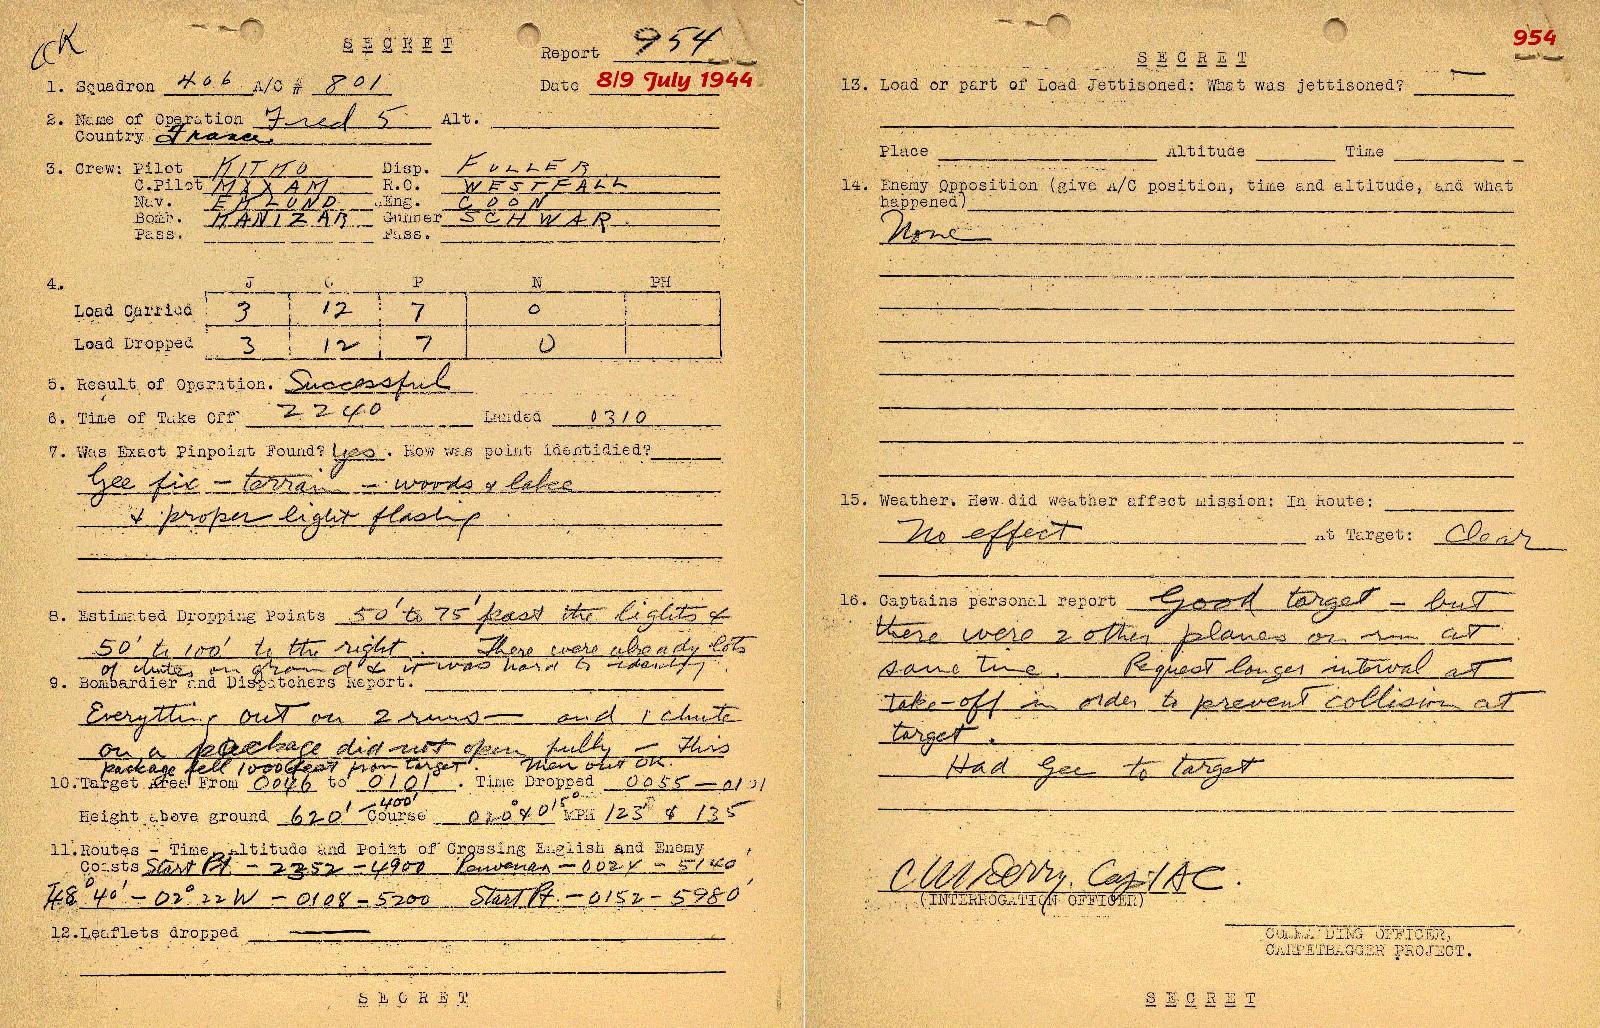 CK
SECRET
Report 954
1. Squadron 406 A/C # 801 Date 8/9 July 1944
2. Name of Operation Fred 5 Alt.
Country France
3. Crew: Pilot KITKO Disp. FULLER
C.Pilot R.O. WESTFALL
Nav. EKLUND Eng. COON
Bomb. KANIZAR Gunner SCHWAR.
Pass. Pass.
4. J C P N PH
Load Carried 3 12 7 0
Load Dropped 3 12 7 0
5. Result of Operation. Successful
6. Time of Take Off 2240 Landed 0310
7. Was Exact Pinpoint Found? Yes. How was point identidied?
Gee fix - terrain - woods & lake
& proper light flashing
8. Estimated Dropping Points 50' to 75' past the lights &
50' to 100' to the right. There were already lots
of chutes on ground & it was hard to identify.
9. Bombardier and Dispatchers Report.
Everything out on 2 runs - and 1 chute
on a package did not open fully - This
package fell 1000 feet from target. Men out OK.
10. Target Area From 0046 to 0101. Time Dropped 0055-0101
Height above ground 620'-400' Course 020° & 015° MPH 123 & 135
11. Routes - Time, Altitude and Point of Crossing English and Enemy
Coasts Start Pt. - 2352 - 4900 - 0024 - 5140'
48° 40' - 02° 22W - 0108 - 5200 Start Pt. - 0152 - 5980'
12. Leaflets dropped
SECRET
954
SECRET
13. Load or part of Load Jettisoned: What was jettisoned? —
Place Altitude Time
14. Enemy Opposition (give A/C position, time and altitude, and what
happened)
None
15. Weather. How did weather affect mission: In Route:
No effect At Target: Clear
16. Captains personal report Good target - but
there were 2 other planes on run at
same time. Request longer interval at
take-off in order to prevent collision at
target.
Had Gee to target
Capt AC.
(INTERROGATION OFFICER)
COMMANDING OFFICER,
CARPETBAGGER PROJECT.
SECRET